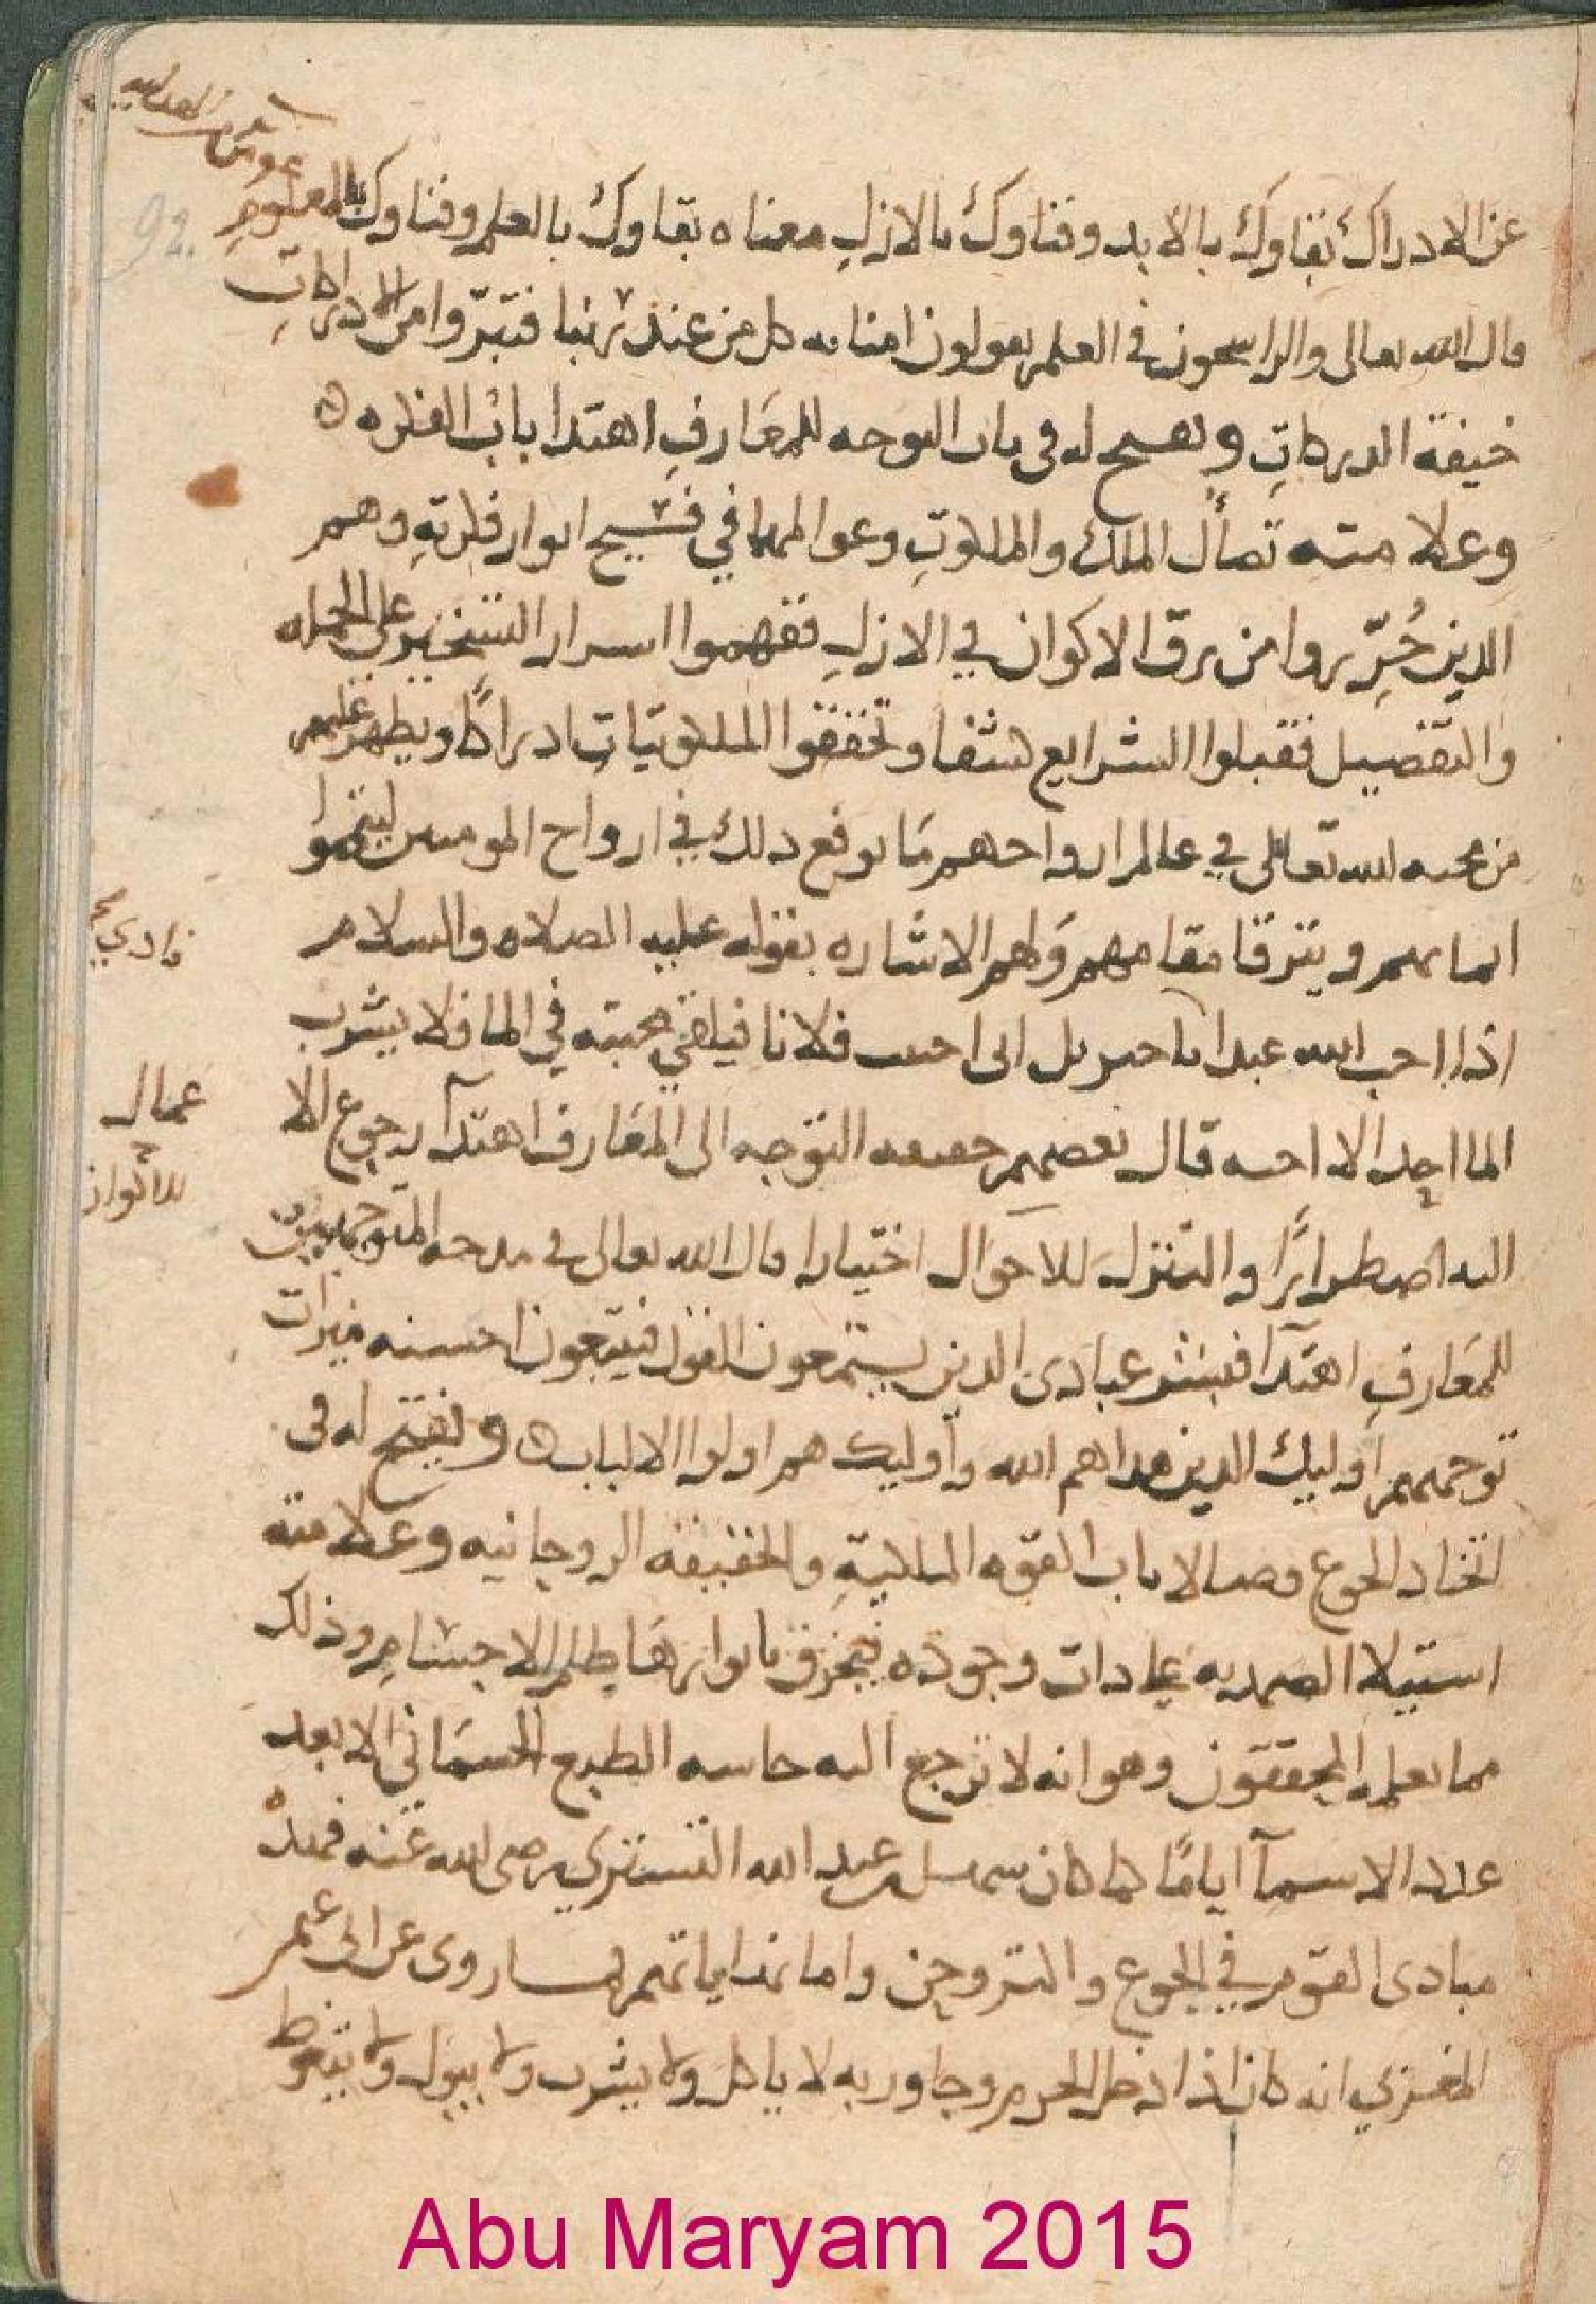 عن الادراك بقاوك بالابد وفناوك بالازل معناه بقاوك بالعلم وفناوك بالمعلوم
92.
قال الله تعالى والراسخون في العلم يقولون امنا به كل من عند ربنا فتبروا من الادراكات
خيفة الدركات ويفتح له في باب التوجه للمعارف اهتدا باب القدره
وعلامته تضأل الملك والملكوت وعوالمهما في فسيح انوار قدرته وهم
الذين حُرِّروا من رق الاكوان في الازل ففهموا اسرار التسخير على الجمله
والتفصيل فقبلوا الشرايع كشفا وتحققوا الملكوتيات ادراكا ويظهر عليهم
من محبه الله تعالى في عالم ارواحهم ما يوقع ذلك في ارواح المومنين ليتموا
ايمانهم ويترقا مقامهم ولهم الاشاره بقوله عليه الصلاه والسلام
اذا احب الله عبدا يا جبريل اني احب فلانا فيلقي محبته في الما فلا يشرب
الما احد الا احبه قال بعضهم حقيقه التوجه الى المعارف اهتدآ رجوع الا
اليه اضطرارًا والتنزل للاحوال اختيارا قال الله تعالى في مدحه المتوجهين
للمعارف اهتدآ فبشر عبادي الذين يستمعون القول فيتبعون احسنه ميراث
توجههم اوليك الذين هداهم الله وأوليك هم اولوا الالباب ويفتح له في
اتخاد الجوع وصالا باب القوه الملكية والحقيقه الروحانيه وعلامته
استيلا الصمديه على ذات وجوده فيخرق بانوارها ظلم الاجسام وذلك
مما يعلمه المحققون وهو انه لا ترجع اليه حاسه الطبع الجسماني الا بعد
عدد الاسمآ ايامًا كما كان سهل بن عبد الله التستري رضي الله عنه فهذه
مبادي القوم في الجوع والتروحن واما نهاياتهم فما روى عن ابي عمر
المغربي انه كان اذا دخل الحرم وجاور به لا ياكل ولا يشرب ولا يبول ولا يتغوط
Abu Maryam 2015